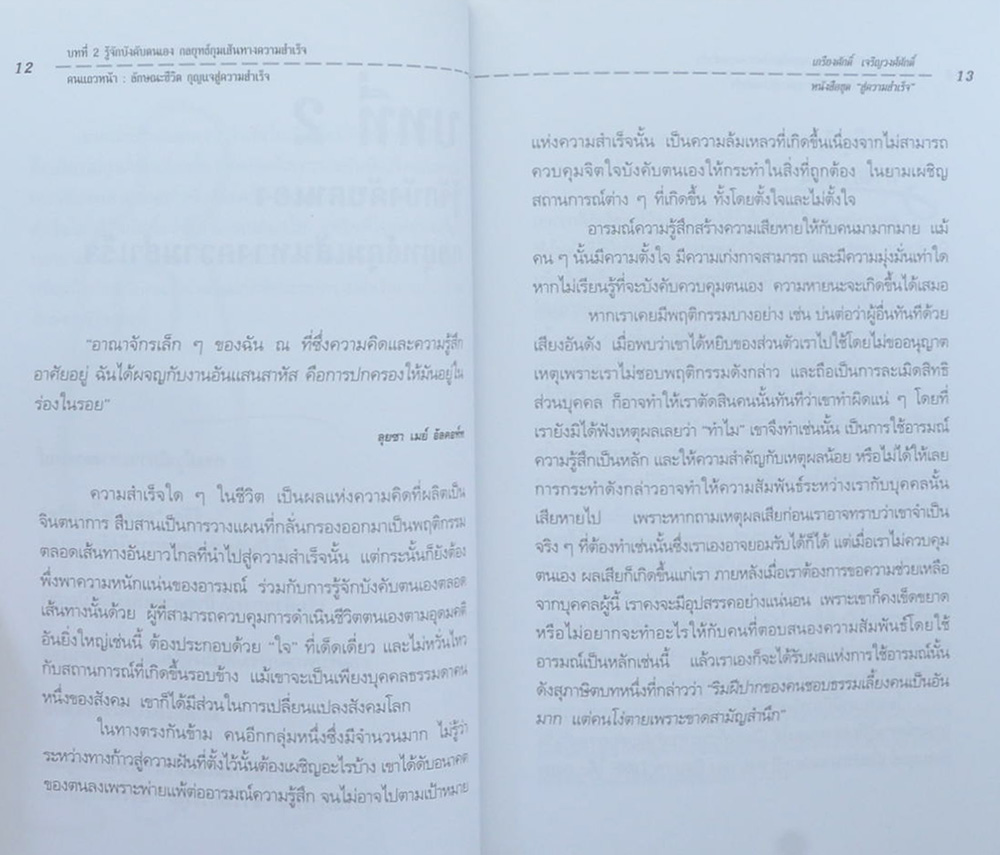 บทที่ 2 รู้จักบังคับตนเอง กลยุทธ์กุมเส้นทางความสำเร็จ
12
คนแถวหน้า : ลักษณะชีวิต กุญแจสู่ความสำเร็จ
"อาณาจักรเล็ก ๆ ของฉัน ณ ที่ซึ่งความคิดและความรู้สึก
อาศัยอยู่ ฉันได้ผจญกับงานอันแสนสาหัส คือการปกครองให้มันอยู่ใน
ร่องในรอย"
ลุยซา เมย์ อัลคอท์ท
ความสำเร็จใด ๆ ในชีวิต เป็นผลแห่งความคิดที่ผลิตเป็น
จินตนาการ สืบสานเป็นการวางแผนที่กลั่นกรองออกมาเป็นพฤติกรรม
ตลอดเส้นทางอันยาวไกลที่นำไปสู่ความสำเร็จนั้น แต่กระนั้นก็ยังต้อง
พึ่งพาความหนักแน่นของอารมณ์ ร่วมกับการรู้จักบังคับตนเองตลอด
เส้นทางนั้นด้วย ผู้ที่สามารถควบคุมการดำเนินชีวิตตนเองตามอุดมคติ
อันยิ่งใหญ่เช่นนี้ ต้องประกอบด้วย "ใจ" ที่เด็ดเดี่ยว และไม่หวั่นไหว
กับสถานการณ์ที่เกิดขึ้นรอบข้าง แม้เขาจะเป็นเพียงบุคคลธรรมดาคน
หนึ่งของสังคม เขาก็ได้มีส่วนในการเปลี่ยนแปลงสังคมโลก
ในทางตรงกันข้าม คนอีกกลุ่มหนึ่งซึ่งมีจำนวนมาก ไม่รู้ว่า
ระหว่างทางก้าวสู่ความฝันที่ตั้งไว้นั้นต้องเผชิญอะไรบ้าง เขาได้ดับอนาคต
ของตนลงเพราะพ่ายแพ้ต่ออารมณ์ความรู้สึก จนไม่อาจไปตามเป้าหมาย
เกรียงศักดิ์ เจริญวงศ์ศักดิ์
13
หนังสือชุด "สู่ความสำเร็จ"
แห่งความสำเร็จนั้น เป็นความล้มเหลวที่เกิดขึ้นเนื่องจากไม่สามารถ
ควบคุมจิตใจบังคับตนเองให้กระทำในสิ่งที่ถูกต้อง ในยามเผชิญ
สถานการณ์ต่าง ๆ ที่เกิดขึ้น ทั้งโดยตั้งใจและไม่ตั้งใจ
อารมณ์ความรู้สึกสร้างความเสียหายให้กับคนมามากมาย แม้
คน ๆ นั้นมีความตั้งใจ มีความเก่งกาจสามารถ และมีความมุ่งมั่นเท่าใด
หากไม่เรียนรู้ที่จะบังคับควบคุมตนเอง ความหายนะจะเกิดขึ้นได้เสมอ
หากเราเคยมีพฤติกรรมบางอย่าง เช่น บ่นต่อว่าผู้อื่นทันทีด้วย
เสียงอันดัง เมื่อพบว่าเขาได้หยิบของส่วนตัวเราไปใช้โดยไม่ขออนุญาต
เหตุเพราะเราไม่ชอบพฤติกรรมดังกล่าว และถือเป็นการละเมิดสิทธิ
ส่วนบุคคล ก็อาจทำให้เราตัดสินคนนั้นทันทีว่าเขาทำผิดแน่ ๆ โดยที่
เรายังมิได้ฟังเหตุผลเลยว่า "ทำไม" เขาจึงทำเช่นนั้น เป็นการใช้อารมณ์
ความรู้สึกเป็นหลัก และให้ความสำคัญกับเหตุผลน้อย หรือไม่ได้ให้เลย
การกระทำดังกล่าวอาจทำให้ความสัมพันธ์ระหว่างเรากับบุคคลนั้น
เสียหายไป เพราะหากถามเหตุผลเสียก่อนเราอาจทราบว่าเขาจำเป็น
จริง ๆ ที่ต้องทำเช่นนั้นซึ่งเราเองอาจยอมรับได้ก็ได้ แต่เมื่อเราไม่ควบคุม
ตนเอง ผลเสียก็เกิดขึ้นแก่เรา ภายหลังเมื่อเราต้องการขอความช่วยเหลือ
จากบุคคลผู้นี้ เราคงจะมีอุปสรรคอย่างแน่นอน เพราะเขาก็คงเข็ดขยาด
หรือไม่อยากจะทำอะไรให้กับคนที่ตอบสนองความสัมพันธ์โดยใช้
อารมณ์เป็นหลักเช่นนี้ แล้วเราเองก็จะได้รับผลแห่งการใช้อารมณ์นั้น
ดังสุภาษิตบทหนึ่งที่กล่าวว่า "ริมฝีปากของคนชอบธรรมเลี้ยงคนเป็นอัน
มาก แต่คนโง่ตายเพราะขาดสามัญสำนึก"